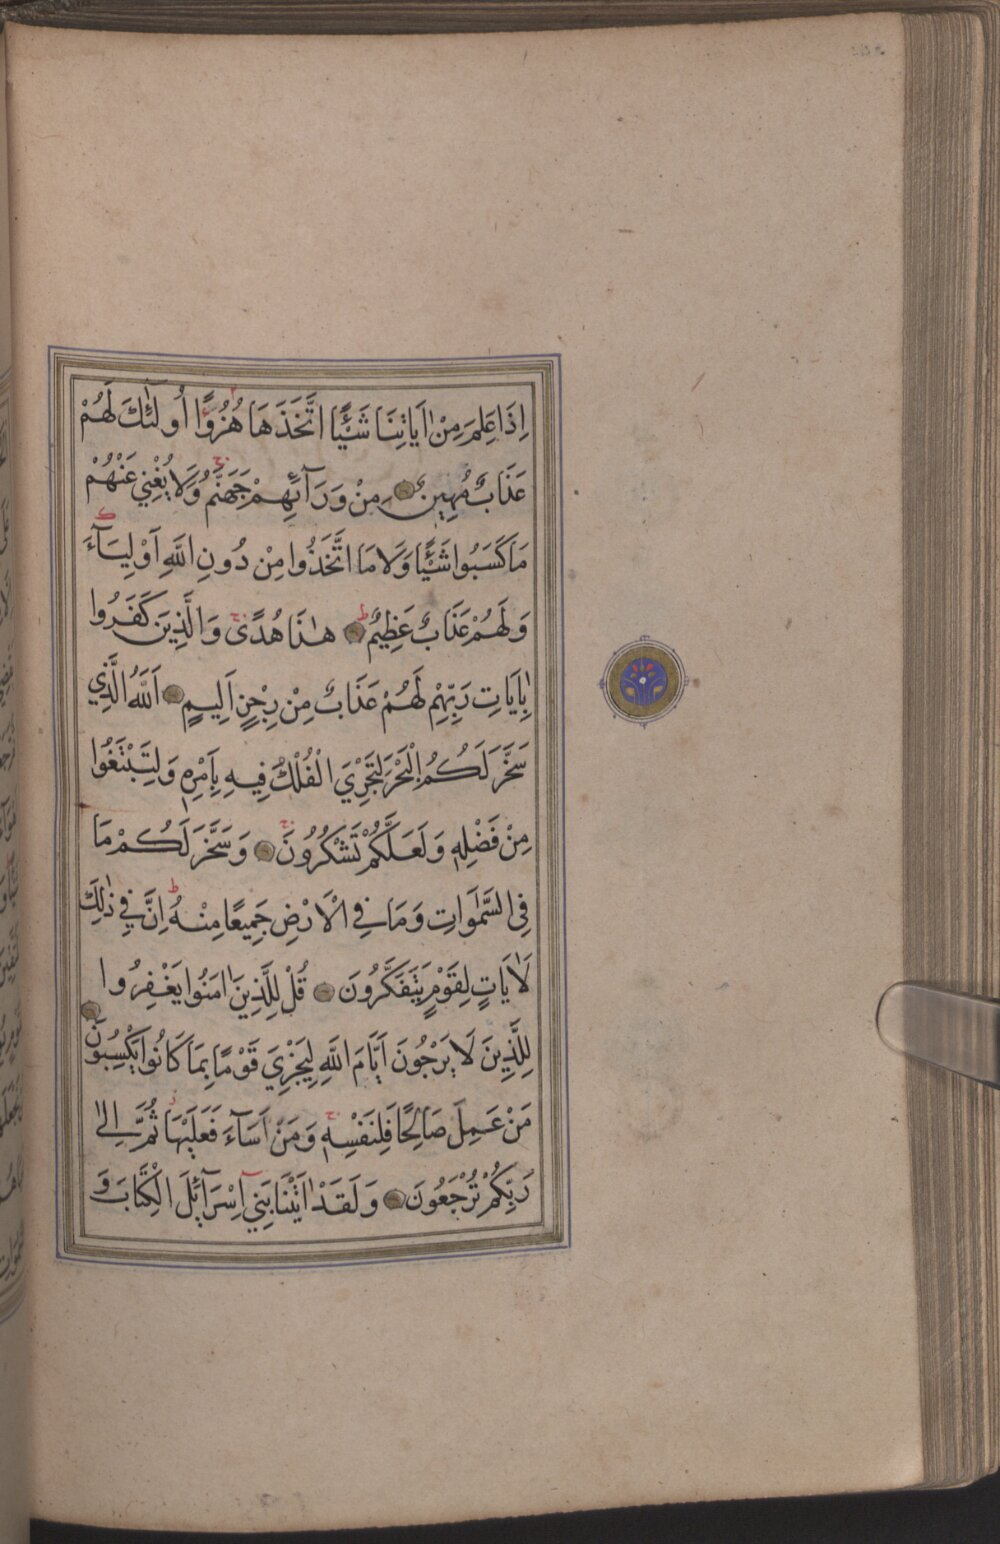 اِذَا عَلِمَ مِنْ اٰيَاتِنَا شَيْـًٔا اتَّخَذَهَا هُزُوًا اُولٰٓئِكَ لَهُمْ
عَذَابٌ مُهِينٌ مِنْ وَرَآئِهِمْ جَهَنَّمُ وَلَا يُغْنِي عَنْهُمْ
مَا كَسَبُوا شَيْـًٔا وَلَا مَا اتَّخَذُوا مِنْ دُونِ اللّٰهِ اَوْلِيَآءَ
وَلَهُمْ عَذَابٌ عَظِيمٌ هٰذَا هُدًى وَالَّذِينَ كَفَرُوا
بِاٰيَاتِ رَبِّهِمْ لَهُمْ عَذَابٌ مِنْ رِجْزٍ اَلِيمٍ اَللّٰهُ الَّذِي
سَخَّرَ لَكُمُ الْبَحْرَ لِتَجْرِيَ الْفُلْكُ فِيهِ بِاَمْرِهِ وَلِتَبْتَغُوا
مِنْ فَضْلِهِ وَلَعَلَّكُمْ تَشْكُرُونَ وَسَخَّرَ لَكُمْ مَا
فِي السَّمٰوَاتِ وَمَا فِي الْاَرْضِ جَمِيعًا مِنْهُ اِنَّ فِي ذٰلِكَ
لَاٰيَاتٍ لِقَوْمٍ يَتَفَكَّرُونَ قُلْ لِلَّذِينَ اٰمَنُوا يَغْفِرُوا
لِلَّذِينَ لَا يَرْجُونَ اَيَّامَ اللّٰهِ لِيَجْزِيَ قَوْمًا بِمَا كَانُوا يَكْسِبُونَ
مَنْ عَمِلَ صَالِحًا فَلِنَفْسِهِ وَمَنْ اَسَآءَ فَعَلَيْهَا ثُمَّ اِلٰى
رَبِّكُمْ تُرْجَعُونَ وَلَقَدْ اٰتَيْنَا بَنِي اِسْرَآئِلَ الْكِتَابَ وَ